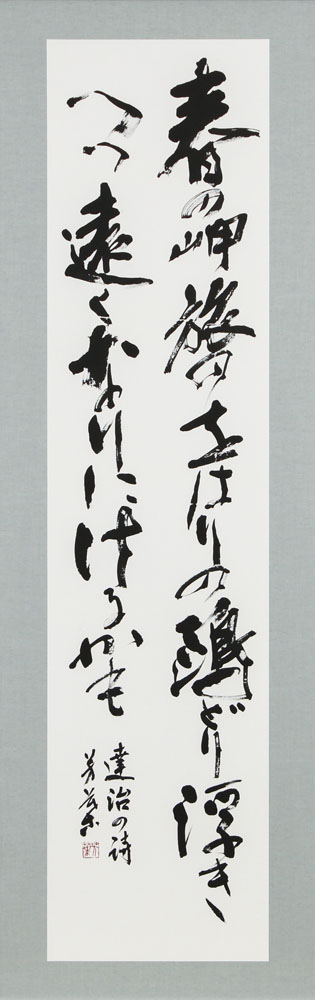 春の岬旅のをはりの鴎どり浮き
つゝ遠くなりにけるかも
達治の詩